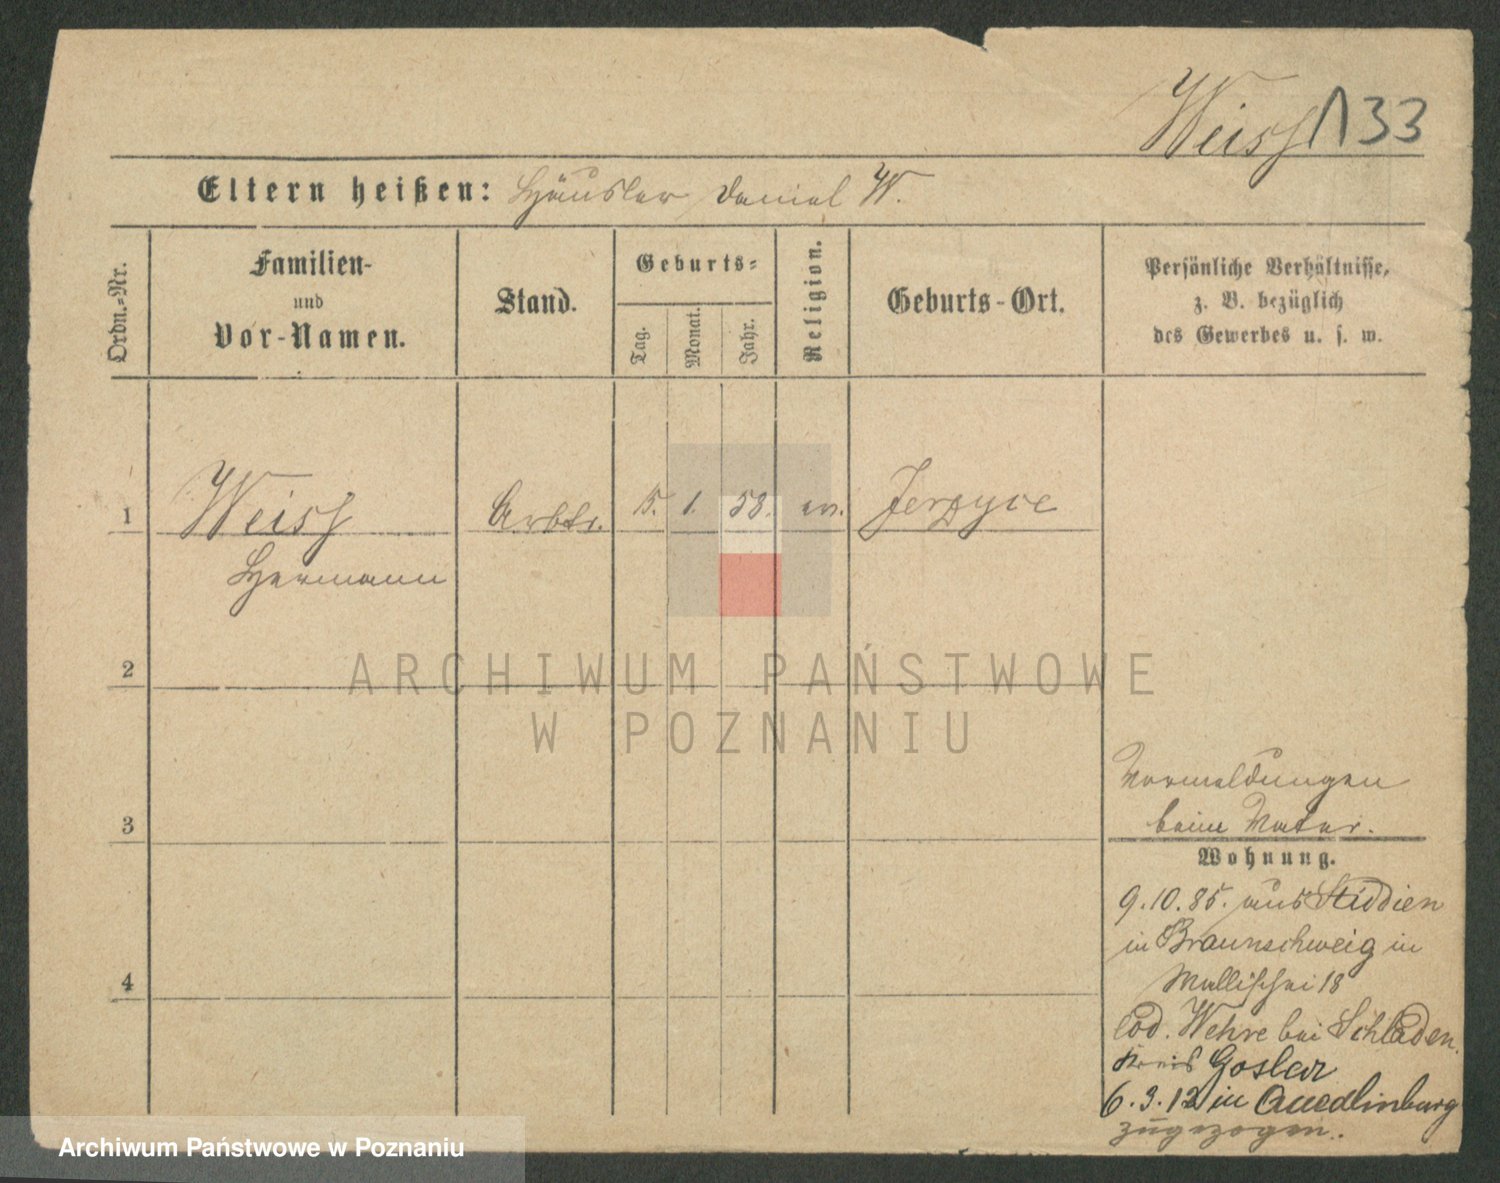 Weiss 133
Eltern heißen: Häusler Daniel W.
Ordn.-Nr.
Familien-
und
Vor-Namen.
Stand.
Geburts-
Tag.
Monat.
Jahr.
Religion.
Geburts-Ort.
Persönliche Verhältnisse,
z. B. bezüglich
des Gewerbes u. s. w.
1 Weiss Arbtr. 15. 1. 58. ev. Jerzyce
Hermann
2
3
4
Vormeldungen
beim Vater.
Wohnung.
9.10.85. aus Stüdien
in Braunschweig in
18
od. Wehre bei Schladen.
Kreis Goslar
6.3.12 in Quedlinburg
zugezogen.
ARCHIWUM PAŃSTWOWE
W POZNANIU
Archiwum Państwowe w Poznaniu